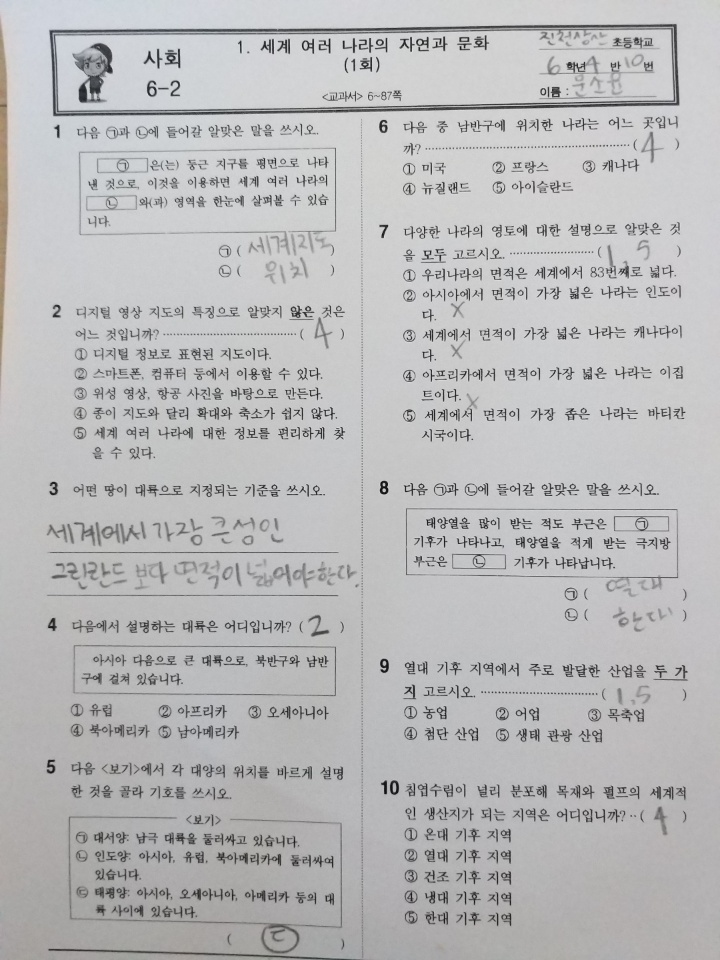 사회
6-2
1. 세계 여러 나라의 자연과 문화
(1회)
<교과서> 6~87쪽
진천상산 초등학교
6 학년 4 반 10 번
이름 : 문소윤
1 다음 ㉠과 ㉡에 들어갈 알맞은 말을 쓰시오.
㉠ 은(는) 둥근 지구를 평면으로 나타
낸 것으로, 이것을 이용하면 세계 여러 나라의
㉡ 와(과) 영역을 한눈에 살펴볼 수 있습
니다.
㉠ ( 세계지도 )
㉡ ( 위치 )
2 디지털 영상 지도의 특징으로 알맞지 않은 것은
어느 것입니까? ( 4 )
① 디지털 정보로 표현된 지도이다.
② 스마트폰, 컴퓨터 등에서 이용할 수 있다.
③ 위성 영상, 항공 사진을 바탕으로 만든다.
④ 종이 지도와 달리 확대와 축소가 쉽지 않다.
⑤ 세계 여러 나라에 대한 정보를 편리하게 찾
을 수 있다.
3 어떤 땅이 대륙으로 지정되는 기준을 쓰시오.
세계에서 가장 큰 섬인
그린란드 보다 면적이 넓어야한다.
4 다음에서 설명하는 대륙은 어디입니까? ( 2 )
아시아 다음으로 큰 대륙으로, 북반구와 남반
구에 걸쳐 있습니다.
① 유럽 ② 아프리카 ③ 오세아니아
④ 북아메리카 ⑤ 남아메리카
5 다음 <보기>에서 각 대양의 위치를 바르게 설명
한 것을 골라 기호를 쓰시오.
<보기>
㉠ 대서양: 남극 대륙을 둘러싸고 있습니다.
㉡ 인도양: 아시아, 유럽, 북아메리카에 둘러싸여
있습니다.
㉢ 태평양: 아시아, 오세아니아, 아메리카 등의 대
륙 사이에 있습니다.
( ㉢ )
6 다음 중 남반구에 위치한 나라는 어느 곳입니
까? ( 4 )
① 미국 ② 프랑스 ③ 캐나다
④ 뉴질랜드 ⑤ 아이슬란드
7 다양한 나라의 영토에 대한 설명으로 알맞은 것
을 모두 고르시오. ( 1, 5 )
① 우리나라의 면적은 세계에서 83번째로 넓다.
② 아시아에서 면적이 가장 넓은 나라는 인도이
다. X
③ 세계에서 면적이 가장 넓은 나라는 캐나다이
다. X
④ 아프리카에서 면적이 가장 넓은 나라는 이집
트이다. X
⑤ 세계에서 면적이 가장 좁은 나라는 바티칸
시국이다.
8 다음 ㉠과 ㉡에 들어갈 알맞은 말을 쓰시오.
태양열을 많이 받는 적도 부근은 ㉠
기후가 나타나고, 태양열을 적게 받는 극지방
부근은 ㉡ 기후가 나타납니다.
㉠ ( 열대 )
㉡ ( 한대 )
9 열대 기후 지역에서 주로 발달한 산업을 두 가
지 고르시오. ( 1, 5 )
① 농업 ② 어업 ③ 목축업
④ 첨단 산업 ⑤ 생태 관광 산업
10 침엽수림이 널리 분포해 목재와 펄프의 세계적
인 생산지가 되는 지역은 어디입니까? ( 4 )
① 온대 기후 지역
② 열대 기후 지역
③ 건조 기후 지역
④ 냉대 기후 지역
⑤ 한대 기후 지역